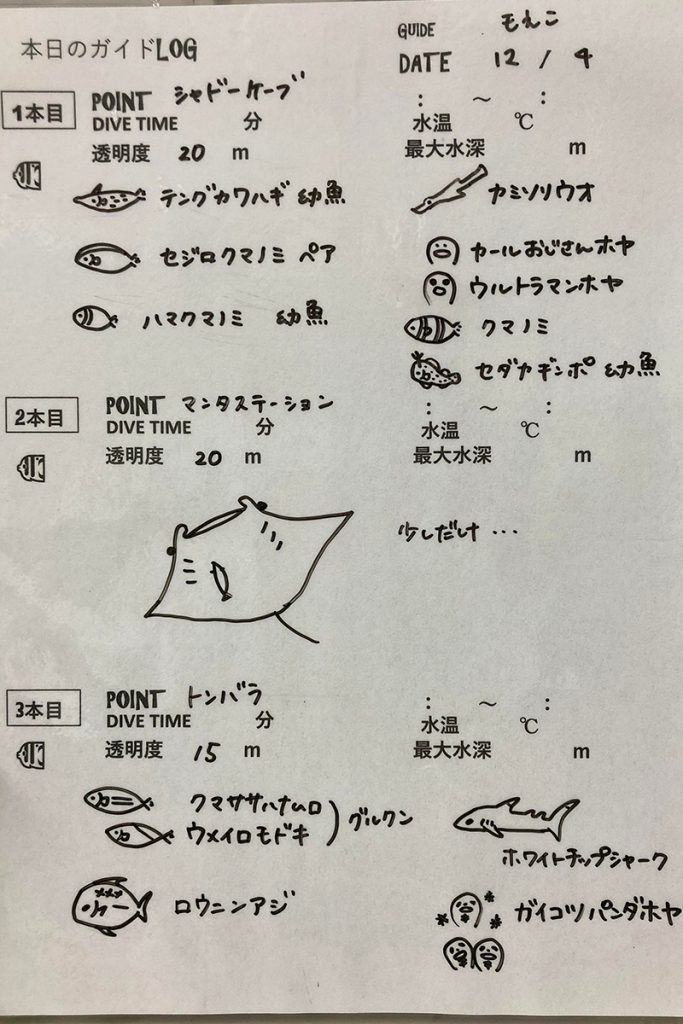 本日のガイドLOG
GUIDE もえこ
DATE 12 / 4
1本目
POINT シャドーケーブ
: ～ :
DIVE TIME 分
水温 ℃
透明度 20 m
最大水深 m
テングカワハギ 幼魚
カミソリウオ
セジロクマノミ ペア
カールおじさんホヤ
ウルトラマンホヤ
ハマクマノミ 幼魚
クマノミ
セダカギンポ 幼魚
2本目
POINT マンタステーション
: ～ :
DIVE TIME 分
水温 ℃
透明度 20 m
最大水深 m
少しだけ ...
3本目
POINT トンバラ
: ～ :
DIVE TIME 分
水温 ℃
透明度 15 m
最大水深 m
クマササハナムロ
ウメイロモドキ
グルクン
ホワイトチップシャーク
ロウニンアジ
ガイコツパンダホヤ